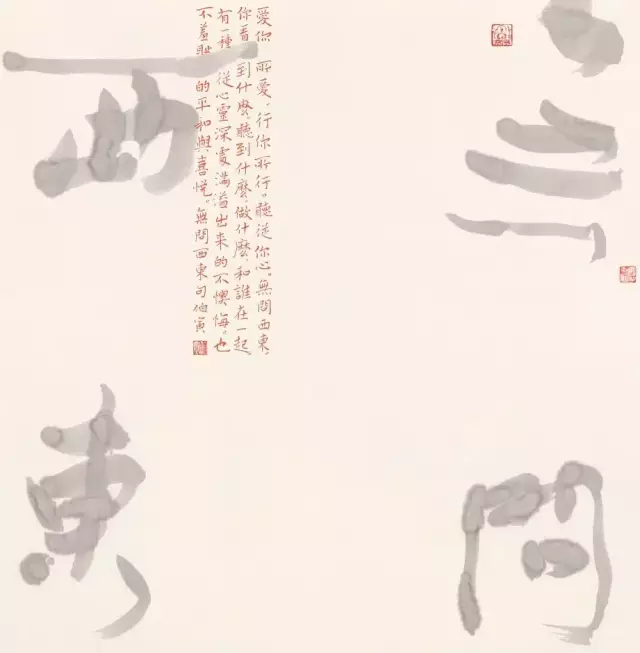 無問
西東
愛你所愛、行你所行。聽從你心。無問西東，
你看到什麼，聽到什麼，做什麼，和誰在一起，
有一種從心靈深處滿溢出来的不懊悔。也
不羞耻的平和與喜悅。無問西東句伯寅